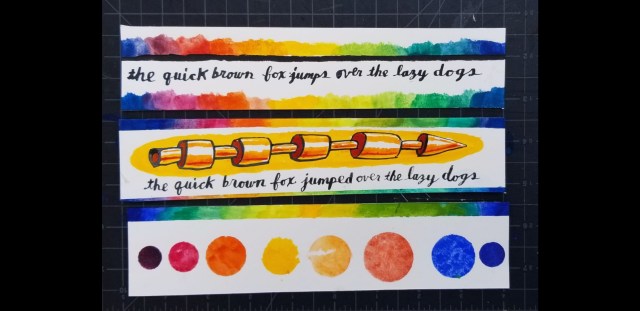 the quick brown fox jumps over the lazy dogs
the quick brown fox jumped over the lazy dogs